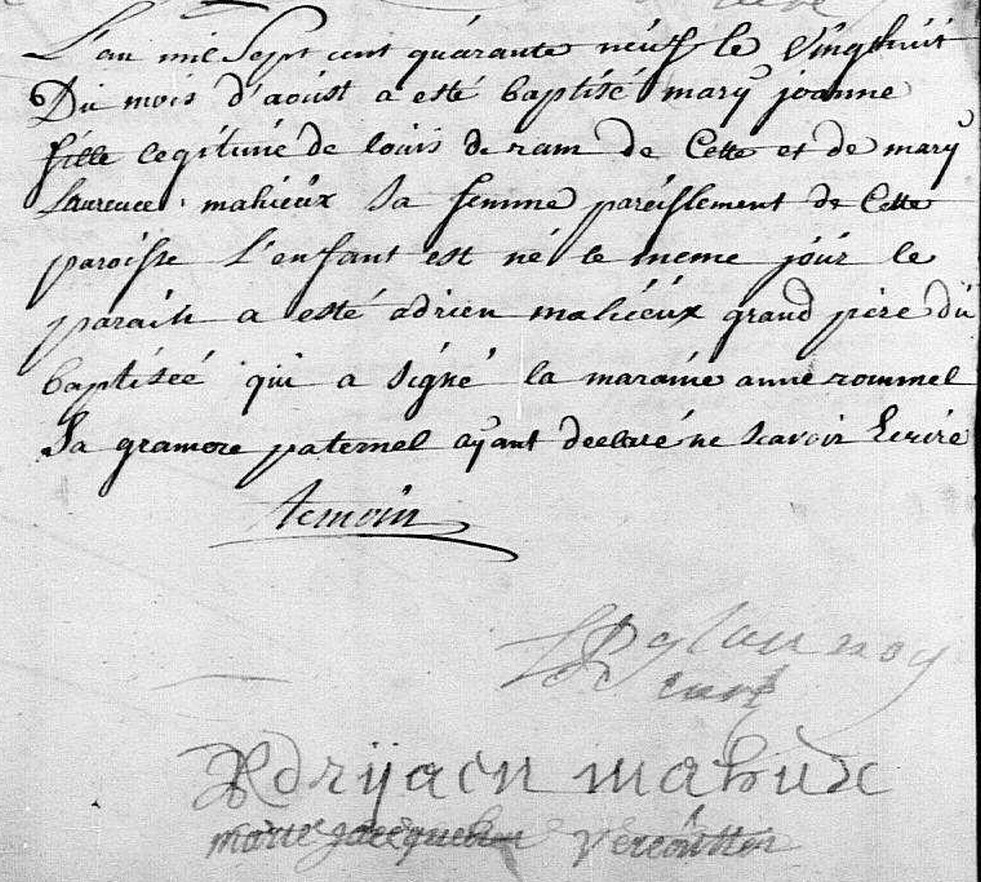 L'an mil Sept cent quarante neuf le Vingthuit
Du mois d'aoust a esté baptisé mary joanne
fille legitime de louis deram de Cette et de mary
Laurence mahieux Sa femme pareissement de Cette
paroisse L'enfant est né le meme jour le
parain a esté adrien mahieux grand pere du
baptiseé qui a signé la maraine anne rommel
Sa gramere paternel ayant declaré ne scavoir Ecrire
temoin
curé
Adrijaen mahieux
marie Jacqueline